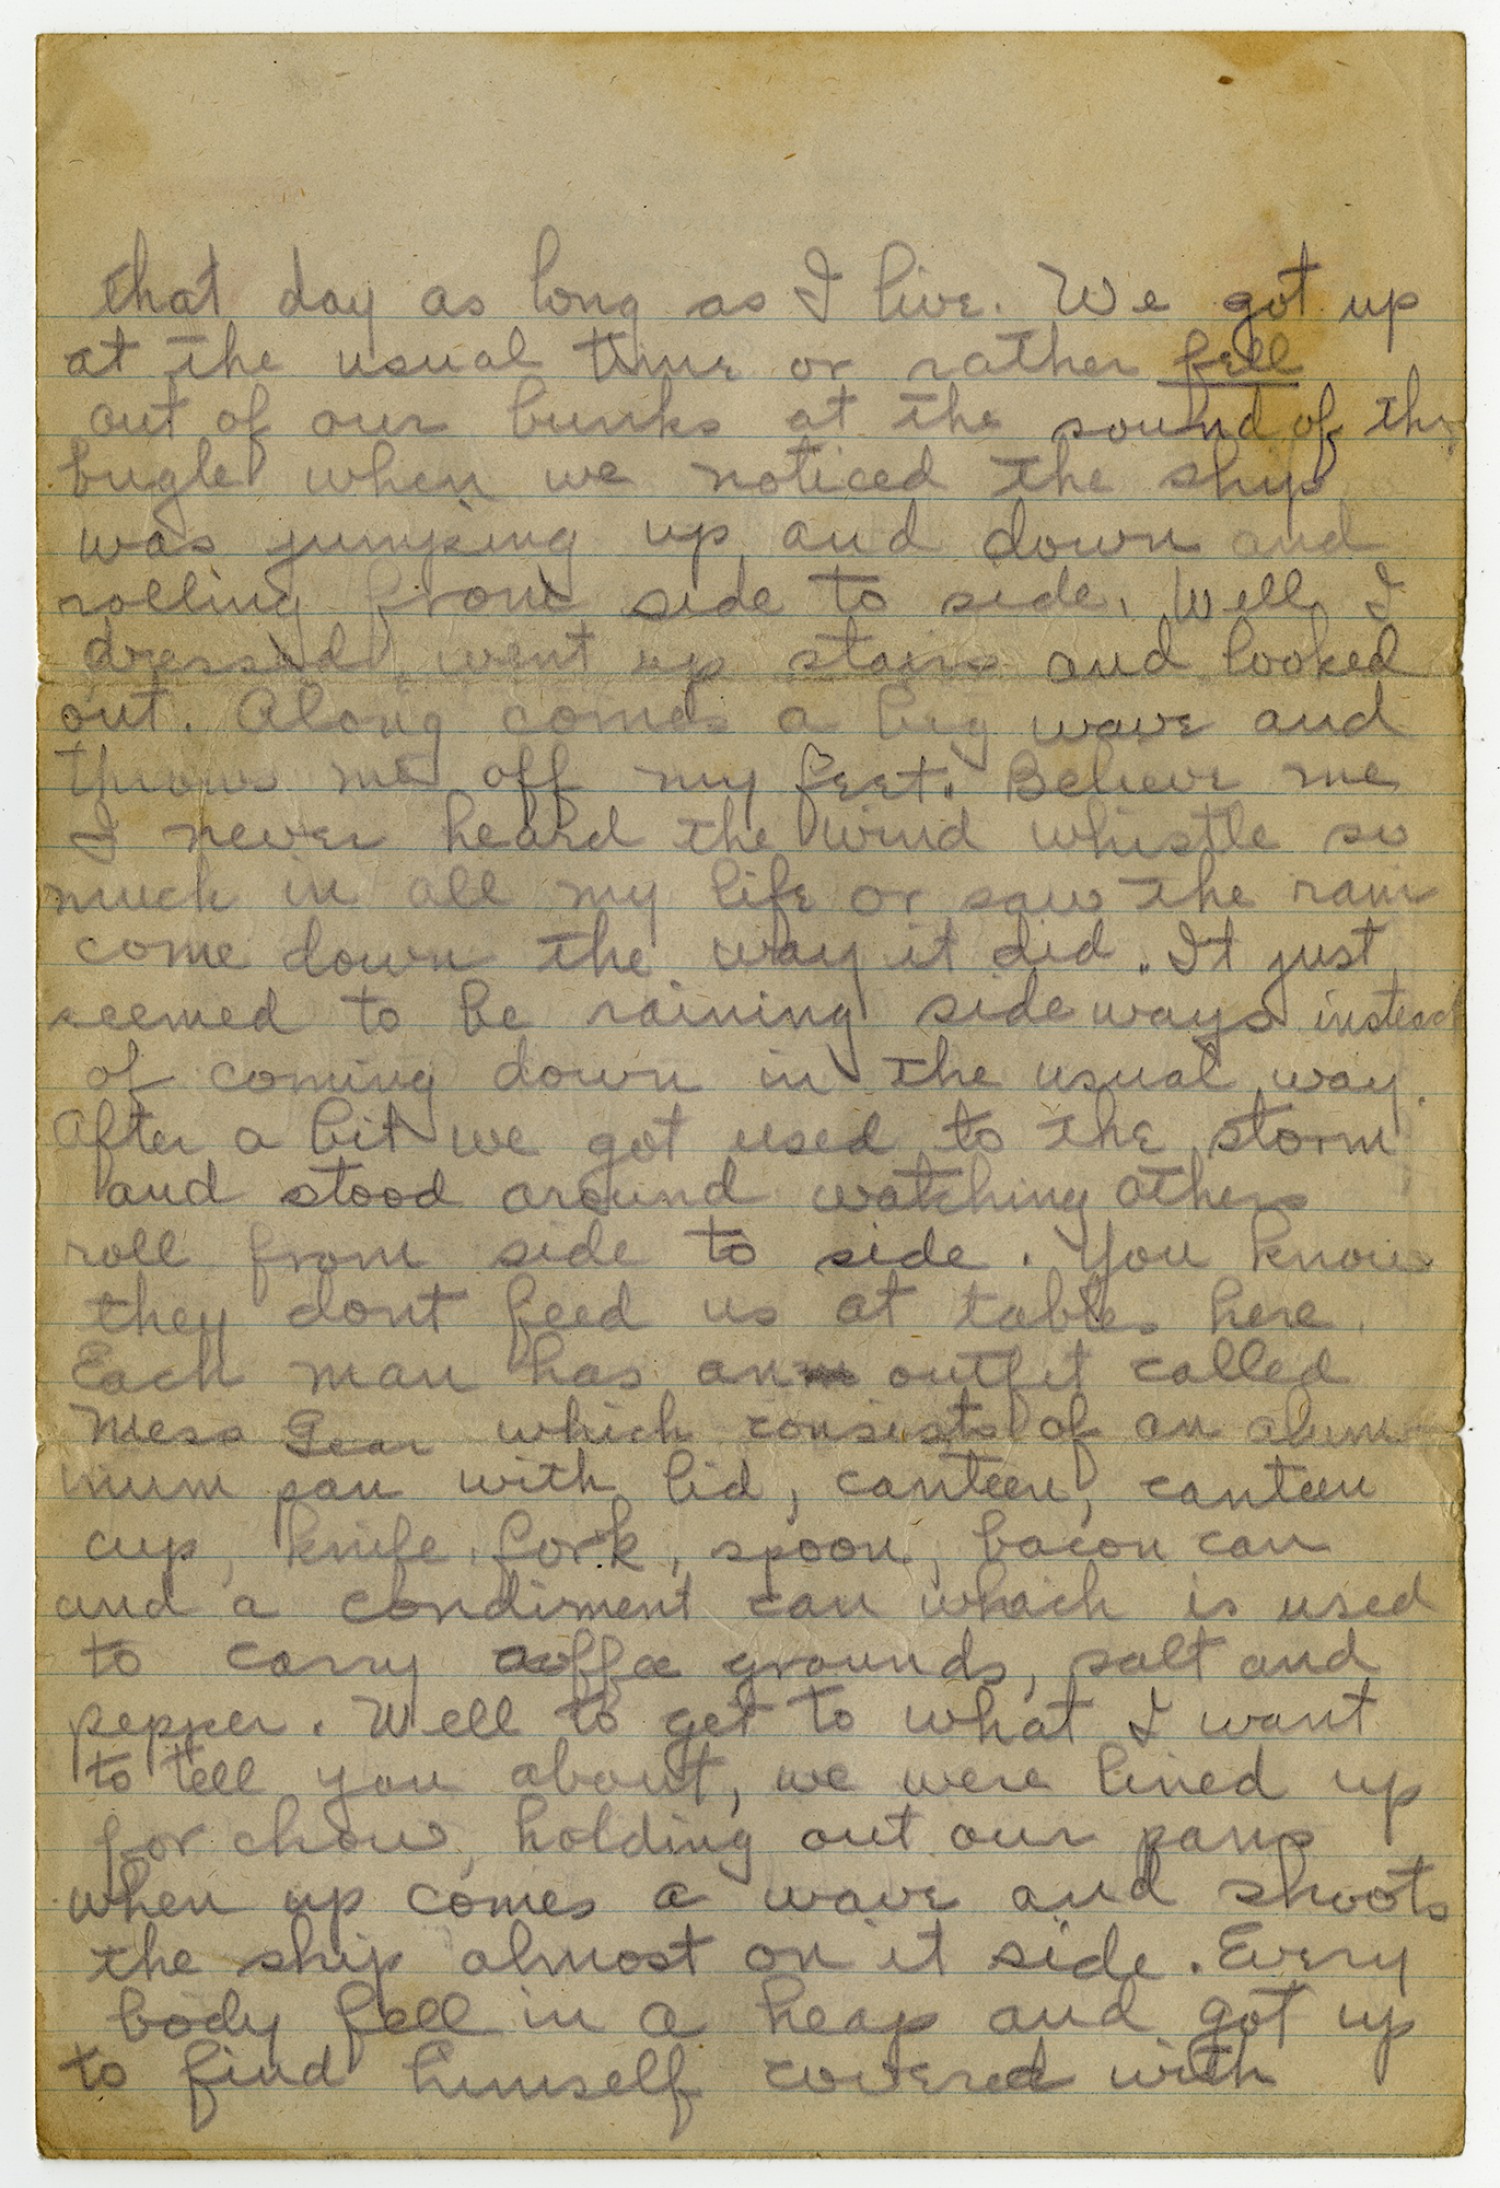 that day as long as I live. We got up
at the usual time or rather fell
out of our bunks at the sound of the
bugle when we noticed the ship
was jumping up and down and
rolling from side to side. Well I
dressed, went up stairs and looked
out. Along comes a big wave and
throws me off my feet. Believe me
I never heard the wind whistle so
much in all my life or saw the rain
come down the way it did. It just
seemed to be raining side ways instead
of coming down in the usual way.
After a bit we got used to the storm
and stood around watching others
roll from side to side. You know
they dont feed us at tables here.
Each man has an outfit called
Mess Gear which consists of an alumi-
inum pan with lid, canteen, canteen
cup, knife, fork, spoon, bacon can
and a condiment can which is used
to carry coffee grounds, salt and
pepper. Well to get to what I want
to tell you about, we were lined up
for chow, holding out our pans
when up comes a wave and shoots
the ship almost on it side. Every
body fell in a heap and got up
to find himself covered with